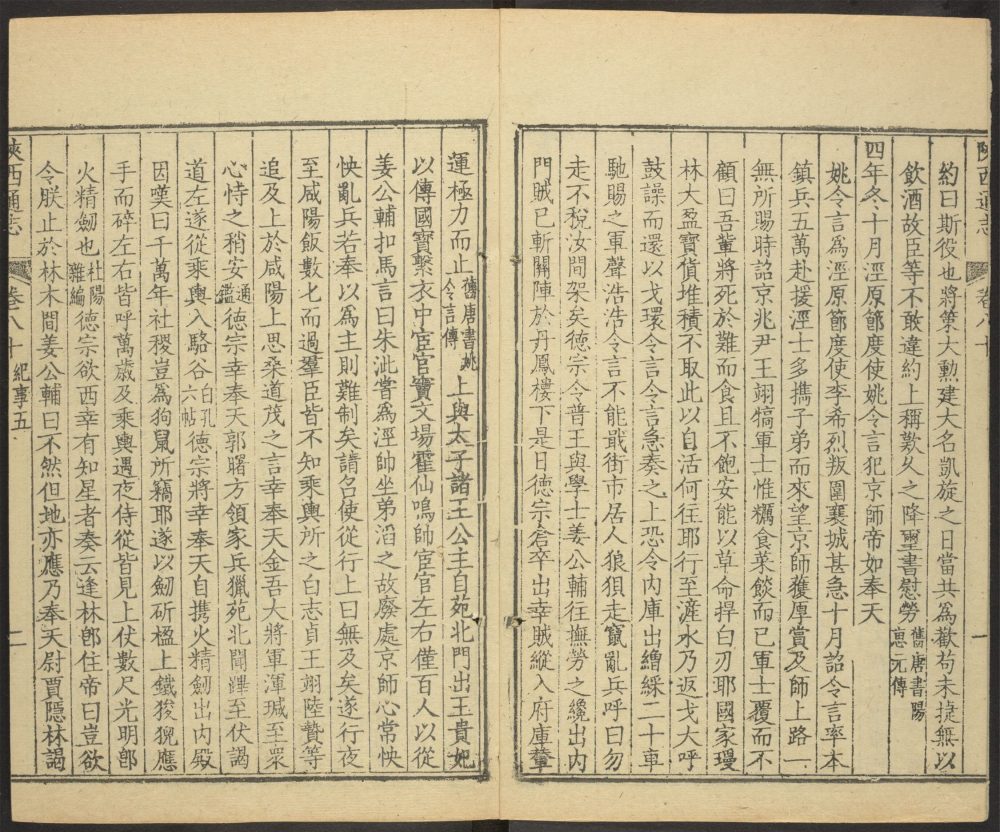 陝西通志
卷八十
一
約曰斯役也將策大勳建大名凱旋之日當共為歡苟未捷無以
飲酒故臣等不敢違約上稱歎久之降璽書慰勞舊唐書陽惠元傳
四年冬十月涇原節度使姚令言犯京師帝如奉天
姚令言為涇原節度使李希烈叛圍襄城甚急十月詔令言率本
鎮兵五萬赴援涇士多攜子弟而來望京師獲厚賞及師上路一
無所賜時詔京兆尹王翃犒軍士惟糲食菜餤而已軍士覆而不
顧曰吾輩將死於難而食且不飽安能以草命捍白刃耶國家瓊
林大盈寶貨堆積不取此以自活何往耶行至滻水乃返戈大呼
鼓譟而還以戈環令言令言急奏之上恐令內庫出繒綵二十車
馳賜之軍聲浩浩令言不能戢街市居人狼狽走竄亂兵呼曰勿
走不稅汝間架矣德宗令普王與學士姜公輔往撫勞之纔出內
門賊已斬關陣於丹鳳樓下是日德宗倉卒出幸賊縱入府庫輦
運極力而止舊唐書姚令言傳上與太子諸王公主自苑北門出王貴妃
以傳國寶繫衣中宦官竇文場霍仙鳴帥宦官左右僅百人以從
姜公輔扣馬言曰朱泚嘗為涇帥坐弟滔之故廢處京師心常怏
怏亂兵若奉以為主則難制矣請召使從行上曰無及矣遂行夜
至咸陽飯數匕而過羣臣皆不知乘輿所之白志貞王翃陸贄等
追及上於咸陽上思桑道茂之言幸奉天金吾大將軍渾瑊至眾
心恃之稍安通鑑德宗幸奉天郭曙方領家兵獵苑北聞蹕至伏謁
道左遂從乘輿入駱谷白孔六帖德宗將幸奉天自攜火精劒出內殿
因嘆曰千萬年社稷豈為狗鼠所竊耶遂以劒斫檻上鐵狻猊應
手而碎左右皆呼萬歲及乘輿遇夜侍從皆見上伏數尺光明即
火精劒也杜陽雜編德宗欲西幸有知星者奏云逢林即住帝曰豈欲
令朕止於林木間姜公輔曰不然但地亦應乃奉天尉賈隱林謁
陝西通志
卷八十
紀事五
二